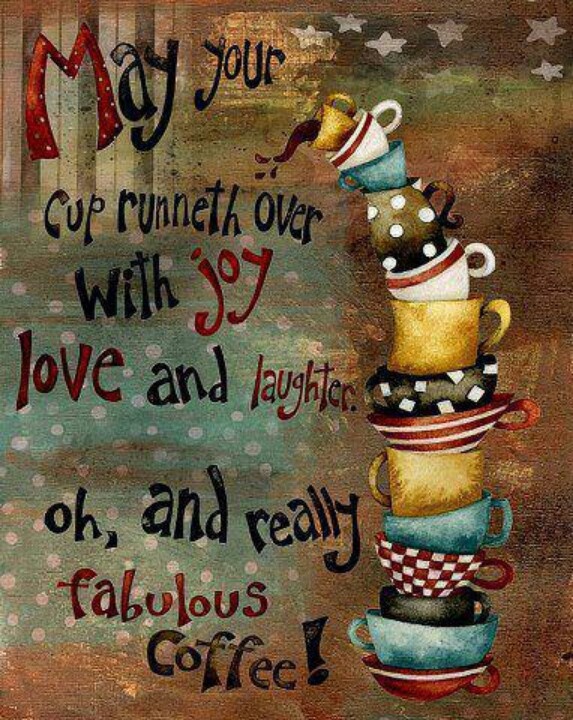 May your
Cup runneth over
with joy
love and laughter.
oh, and really
fabulous
Coffee!